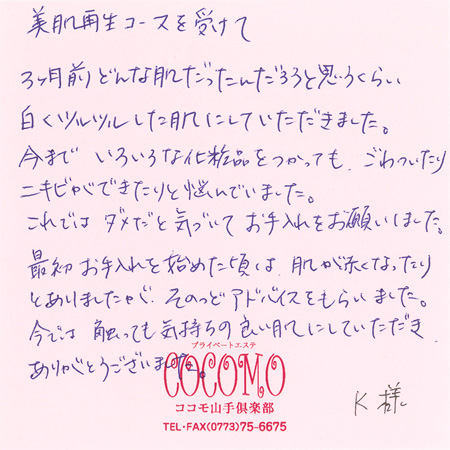 美肌再生コースを受けて
3ヶ月前どんな肌だったんだろうと思うくらい
白くツルツルした肌にしていただきました。
今まで いろいろな化粧品をつかっても、ごわついたり
ニキビができたりと悩んでいました。
これでは ダメだと気づいて お手入れをお願いしました。
最初 お手入れを始めた頃は、肌が赤くなったり
とありましたが、そのつど アドバイスをもらいました。
今では 触っても気持ちの良い肌にしていただき
ありがとうございました。
プライベートエステ
COCOMO
ココモ山手倶楽部
TEL・FAX(0773)75-6675
K様